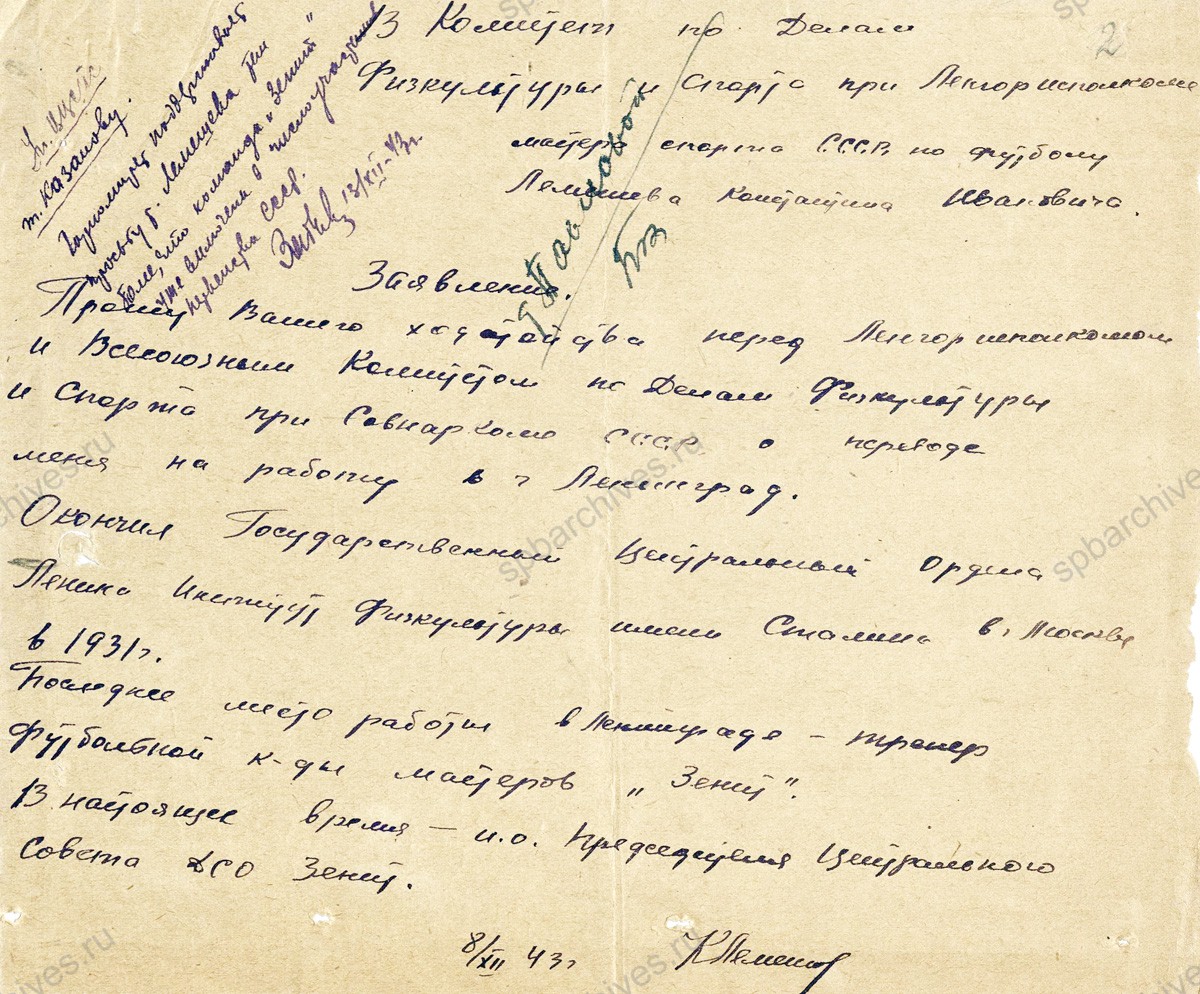 В Комитет по Делам
Физкультуры и Спорта при Ленгорисполкоме
мастера спорта С.С.С.Р. по футболу
Лемешева Константина Ивановича.
2
т. Казанову.
просьбу т. Лемешева
что команда "Зенит"
уже включена в число участников
первенства СССР.
13/XII-43г.
т. Павловой
Заявление.
Прошу Вашего ходатайства перед Ленгорисполкомом
и Всесоюзным Комитетом по Делам Физкультуры
и Спорта при Совнаркоме СССР о переводе
меня на работу в г Ленинград.
Окончил Государственный Центральный Ордена
Ленина Институт Физкультуры имени Сталина в г. Москве
в 1931г.
Последнее место работы в Ленинграде – тренер
Футбольной к-ды мастеров „Зенит".
В настоящее время – и.о. Председателя Центрального
Совета ДСО Зенит.
8/XII 43г КЛемешев
spbarchives.ru
spbarchives.ru
spbarchives.ru
spbarchives.ru
spbarchives.ru
spbarchives.ru